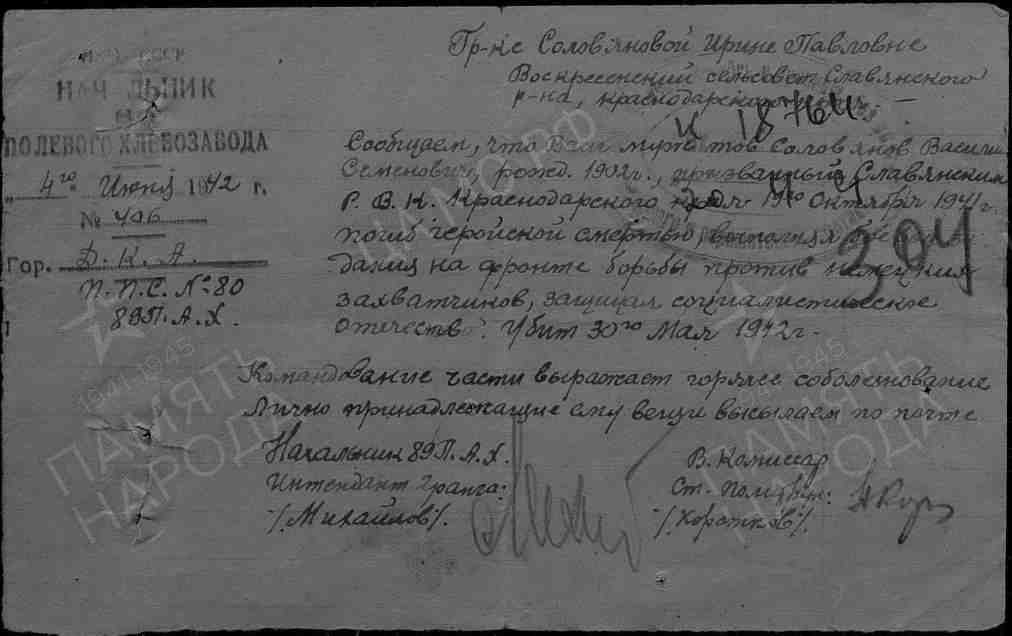 Н.К.О. СССР
НАЧАЛЬНИК
89
ПОЛЕВОГО ХЛЕБОЗАВОДА
„4го Июня 1942 г.
№ 406
Гор. Д. К. А.
П.П.С. № 80
89 П.А.Х.
Гр-ке Соловяновой Ирине Павловне
Воскресенский сельсовет Славянского
р-на, Краснодарского
18764
Сообщаем, что Ваш муж тов Соловянов Васили
Семенович, рожд. 1902г., призванный Славянским
Р.В.К. Краснодарского края 19го Октября 1941г.
погиб геройской смертью, выполняя
дания на фронте борьбы против немецких
304
захватчиков, защищая социалистическое
отечество. Убит 30го Мая 1942г.
Командование части выражает горячее соболезнование
Лично принадлежащие ему вещи высылаем по почте
Начальник 89 П.А.Х.
Интендант 2 ранга:
/Михайлов/.
В. Комиссар
Ст. Политрук:
/Коротков/.
ПАМЯТЬ НАРОДА
1941-1945
ПАМЯТЬ НАРОДА
1945